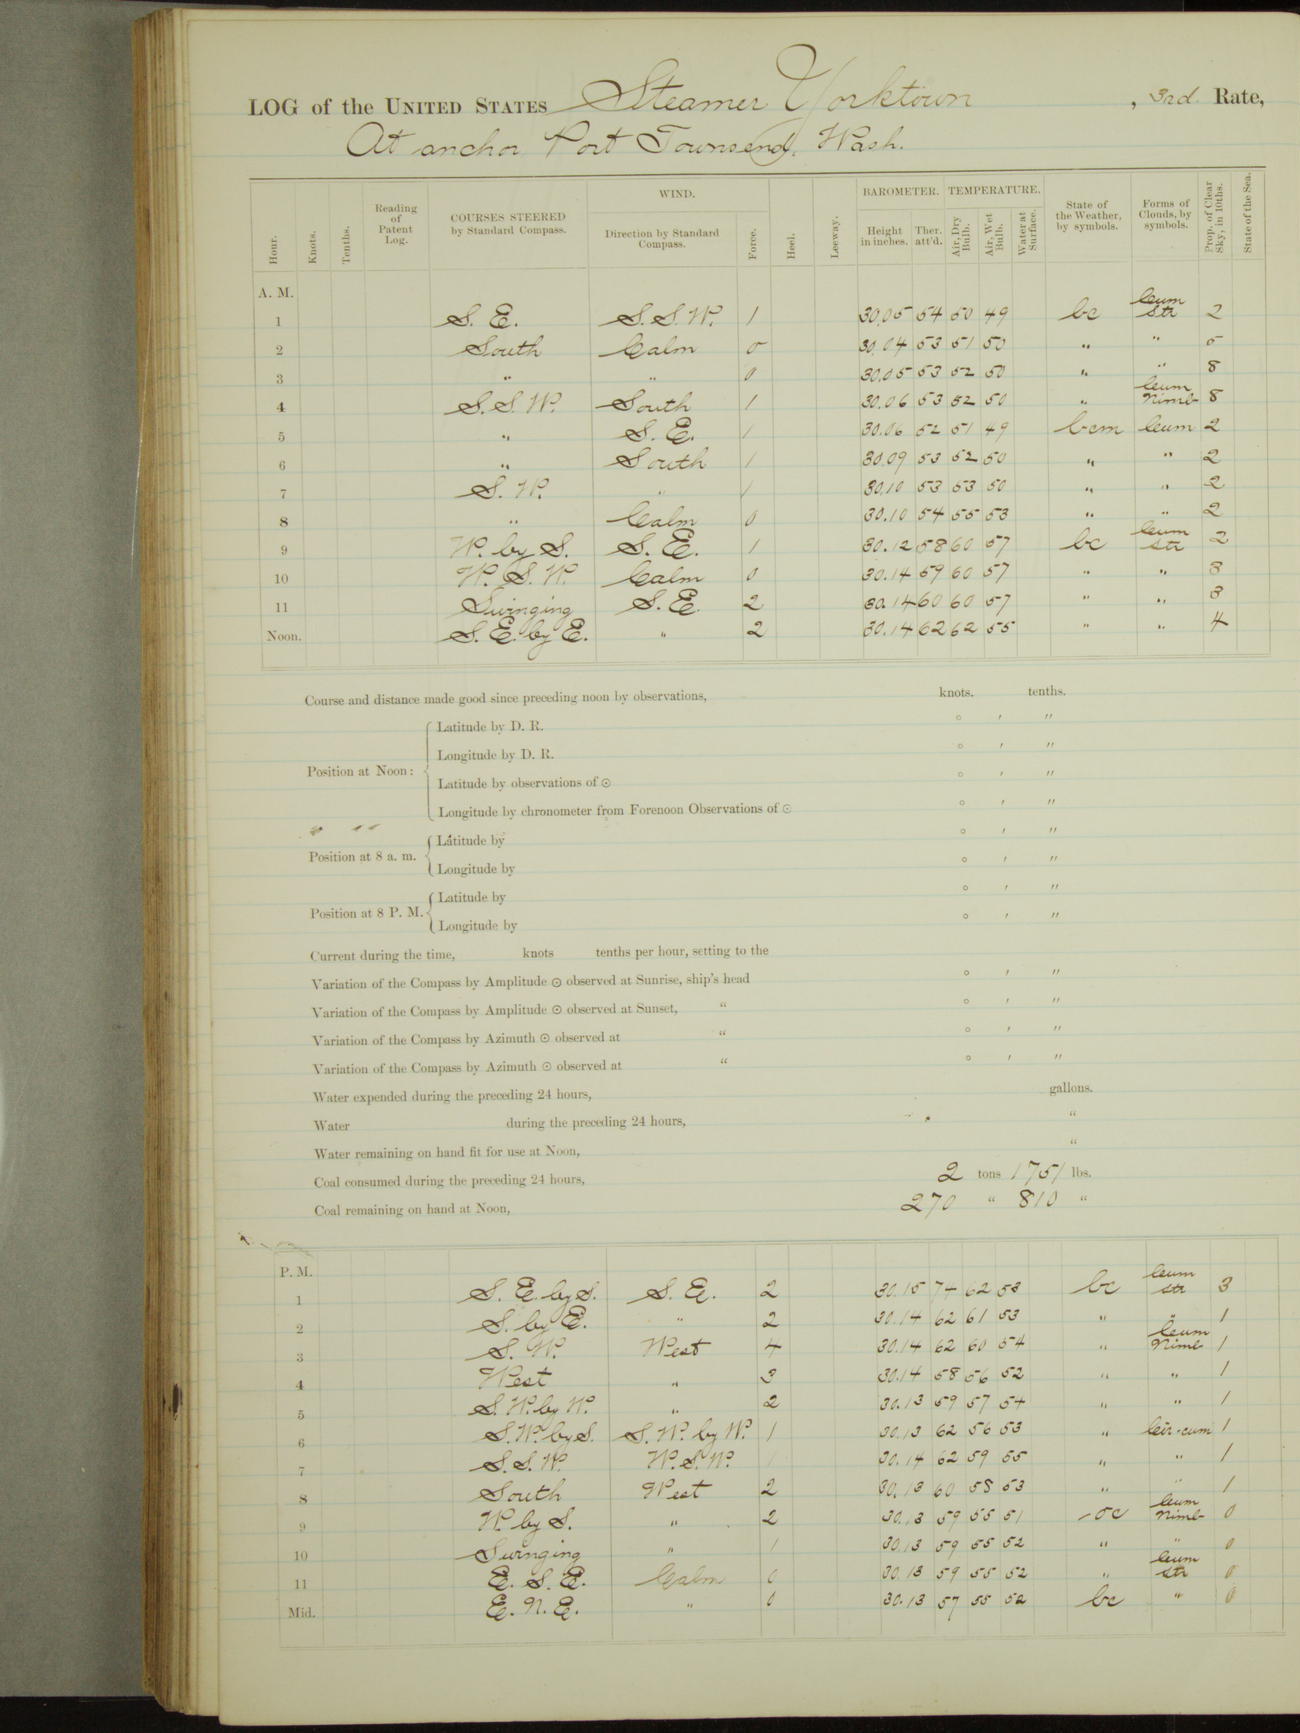 LOG of the UNITED STATES Steamer Yorktown, 3rd Rate,
At anchor Port Townsend, Wash.
Hour. Knots. Tenths. Reading of Patent Log. COURSES STEERED by Standard Compass. WIND. Direction by Standard Compass. Force. Heel. Leeway. BAROMETER. Height in inches. Ther. att'd. TEMPERATURE. Air, Dry Bulb. Air, Wet Bulb. Water at Surface. State of the Weather, by symbols. Forms of Clouds, by symbols. Prop. of Clear Sky, in 10ths. State of the Sea.
A. M.
1 S. E. S. S. W. 1 30.05 54 50 49 bc Cum Str 2
2 South Calm 0 30.04 53 51 50 " " 5
3 " " 0 30.05 53 52 50 " " 8
4 S. S. W. South 1 30.06 53 52 50 " Cum Nimb 8
5 " S. E. 1 30.06 52 51 49 bcm Cum 2
6 " South 1 30.09 53 52 50 " " 2
7 S. W. " 1 30.10 53 53 50 " " 2
8 " Calm 0 30.10 54 55 53 " " 2
9 W. by S. S. E. 1 30.12 58 60 57 bc Cum Str 2
10 W. S. W. Calm 0 30.14 59 60 57 " " 3
11 Swinging S. E. 2 30.14 60 60 57 " " 3
Noon. S. E. by E. " 2 30.14 62 62 55 " " 4
Course and distance made good since preceding noon by observations, knots. tenths.
Position at Noon:
Latitude by D. R. ° ′ ″
Longitude by D. R. ° ′ ″
Latitude by observations of ⊙ ° ′ ″
Longitude by chronometer from Forenoon Observations of ⊙ ° ′ ″
Position at 8 a. m.
Latitude by ° ′ ″
Longitude by ° ′ ″
Position at 8 P. M.
Latitude by ° ′ ″
Longitude by ° ′ ″
Current during the time, knots tenths per hour, setting to the
Variation of the Compass by Amplitude ⊙ observed at Sunrise, ship's head ° ′ ″
Variation of the Compass by Amplitude ⊙ observed at Sunset, " ° ′ ″
Variation of the Compass by Azimuth ⊙ observed at " ° ′ ″
Variation of the Compass by Azimuth ⊙ observed at " ° ′ ″
Water expended during the preceding 24 hours, gallons.
Water during the preceding 24 hours, "
Water remaining on hand fit for use at Noon, "
Coal consumed during the preceding 24 hours, 2 tons 1751 lbs.
Coal remaining on hand at Noon, 270 " 810 "
P. M.
1 S. E. by S. S. E. 2 30.15 74 62 53 bc Cum Str 3
2 S. by E. " 2 30.14 62 61 53 " " 1
3 S. W. West 4 30.14 62 60 54 " Cum Nimb 1
4 West " 3 30.14 58 56 52 " " 1
5 S. W. by W. " 2 30.13 59 57 54 " " 1
6 S. W. by S. S. W. by W. 1 30.13 62 56 53 " Cir-cum 1
7 S. S. W. W. S. W. 1 30.14 62 59 55 " " 1
8 South West 2 30.13 60 58 53 " " 1
9 W. by S. " 2 30.13 59 55 51 oc Cum Nimb 0
10 Swinging " 1 30.13 59 55 52 " " 0
11 E. S. E. Calm 0 30.13 59 55 52 " Cum Str 0
Mid. E. N. E. " 0 30.13 57 55 52 bc " 0